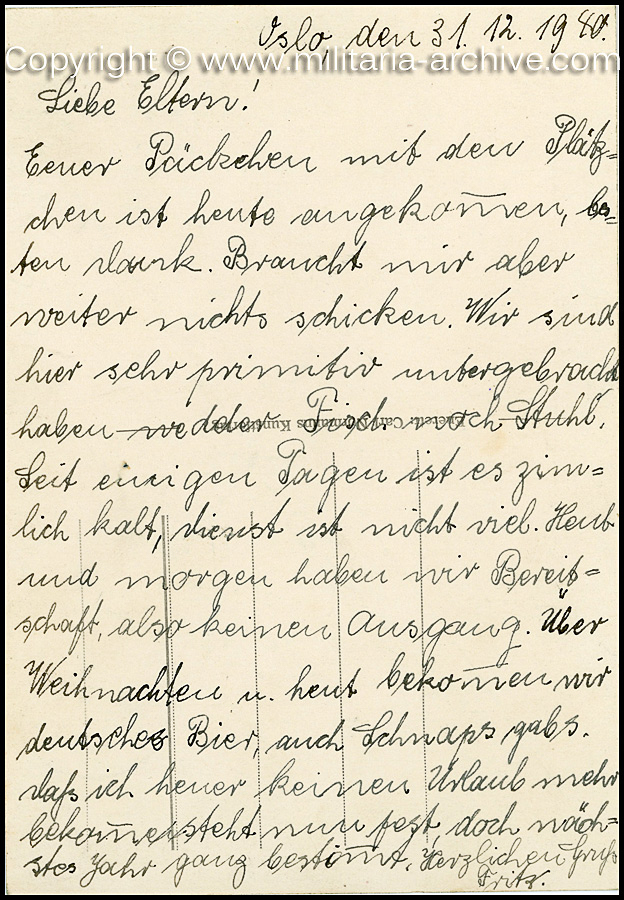 Oslo, den 31. 12. 1940.
Copyright © www.militaria-archive.com
Liebe Eltern!
Eeuer Päckchen mit den Plätz=
chen ist heute angekom̄en, bes=
ten Dank. Braucht mir aber
weiter nichts schicken. Wir sind
hier sehr primitiv untergebracht
haben weder Tisch noch Stuhl.
Carl Normanns
Seit einigen Tagen ist es zim=
lich kalt, dienst ist nicht viel. Heut
und morgen haben wir Bereit=
schaft, also keinen Ausgang. Über
Weihnachten u. heut bekom̄en wir
deutsches Bier, auch Schnaps gabs.
daß ich heuer keinen Urlaub mehr
bekom̄e steht nun fest, doch näch=
stes Jahr ganz bestim̄t. Herzlichen Gruß
Fritz.